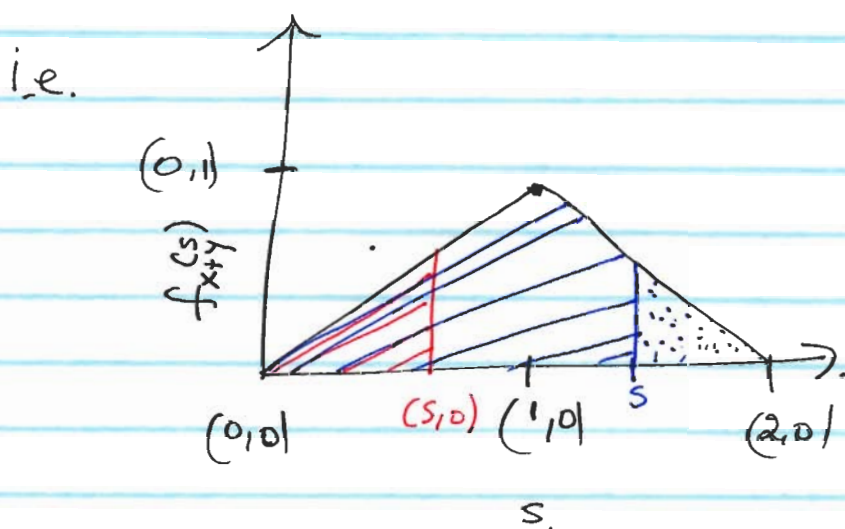 i.e.
(0,1)
f x+y (s)
(0,0)
(s,0)
(1,0)
s
(2,0)
s.